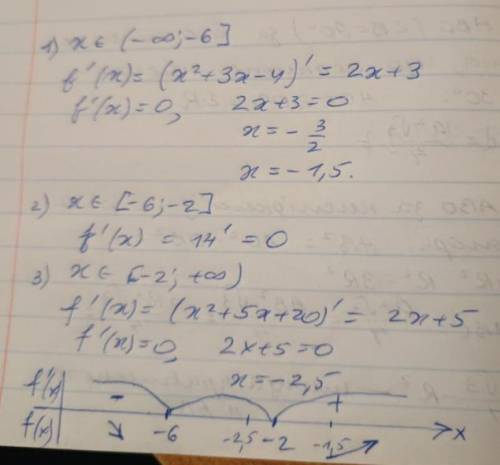 1) x ∈ (-∞; -6]
f'(x) = (x²+3x-4)' = 2x+3
f'(x)=0, 2x+3=0
x = - 3/2
x = -1,5.
2) x ∈ [-6; -2]
f'(x) = 14' = 0
3) x ∈ [-2; +∞)
f'(x) = (x²+5x+20)' = 2x+5
f'(x)=0, 2x+5=0
x = -2,5
f'(x) - +
f(x) ↘ -6 -2,5 -2 -1,5 ↗ x